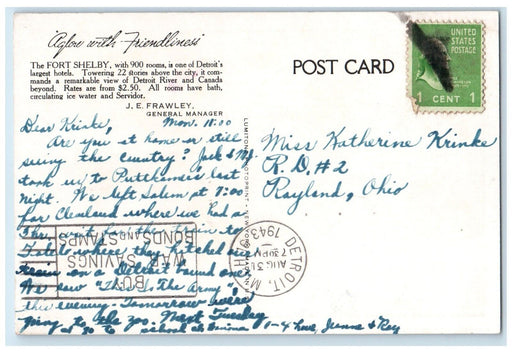 Aglow with Friendliness
The FORT SHELBY, with 900 rooms, is one of Detroit's
largest hotels. Towering 22 stories above the city, it com-
mands a remarkable view of Detroit River and Canada
beyond. Rates are from $2.50. All rooms have bath,
circulating ice water and Servidor.
J. E. FRAWLEY,
GENERAL MANAGER
POST CARD
UNITED
STATES
POSTAGE
1 CENT 1
Dear Krinke, Mon. 18:00
Are you at home or still
seeing the country? Jack &
took us to Puttkamer's last
night. We left Salem at 7:00
for Cleveland where we had a
to
Toledo where they hitched our
train on a Detroit bound one.
We saw "This Is The Army",
this evening. Tomorrow we're
going to the zoo. Next Tuesday
to school at
Love, Jeanne & Ray
Miss Katherine Krinke
R.D. #2
Rayland, Ohio
LUMITONE PHOTOPRINT NEW YORK
BUY
WAR SAVINGS
BONDS AND STAMPS
DETROIT, MICH.
AUG 31
30 PM
1943